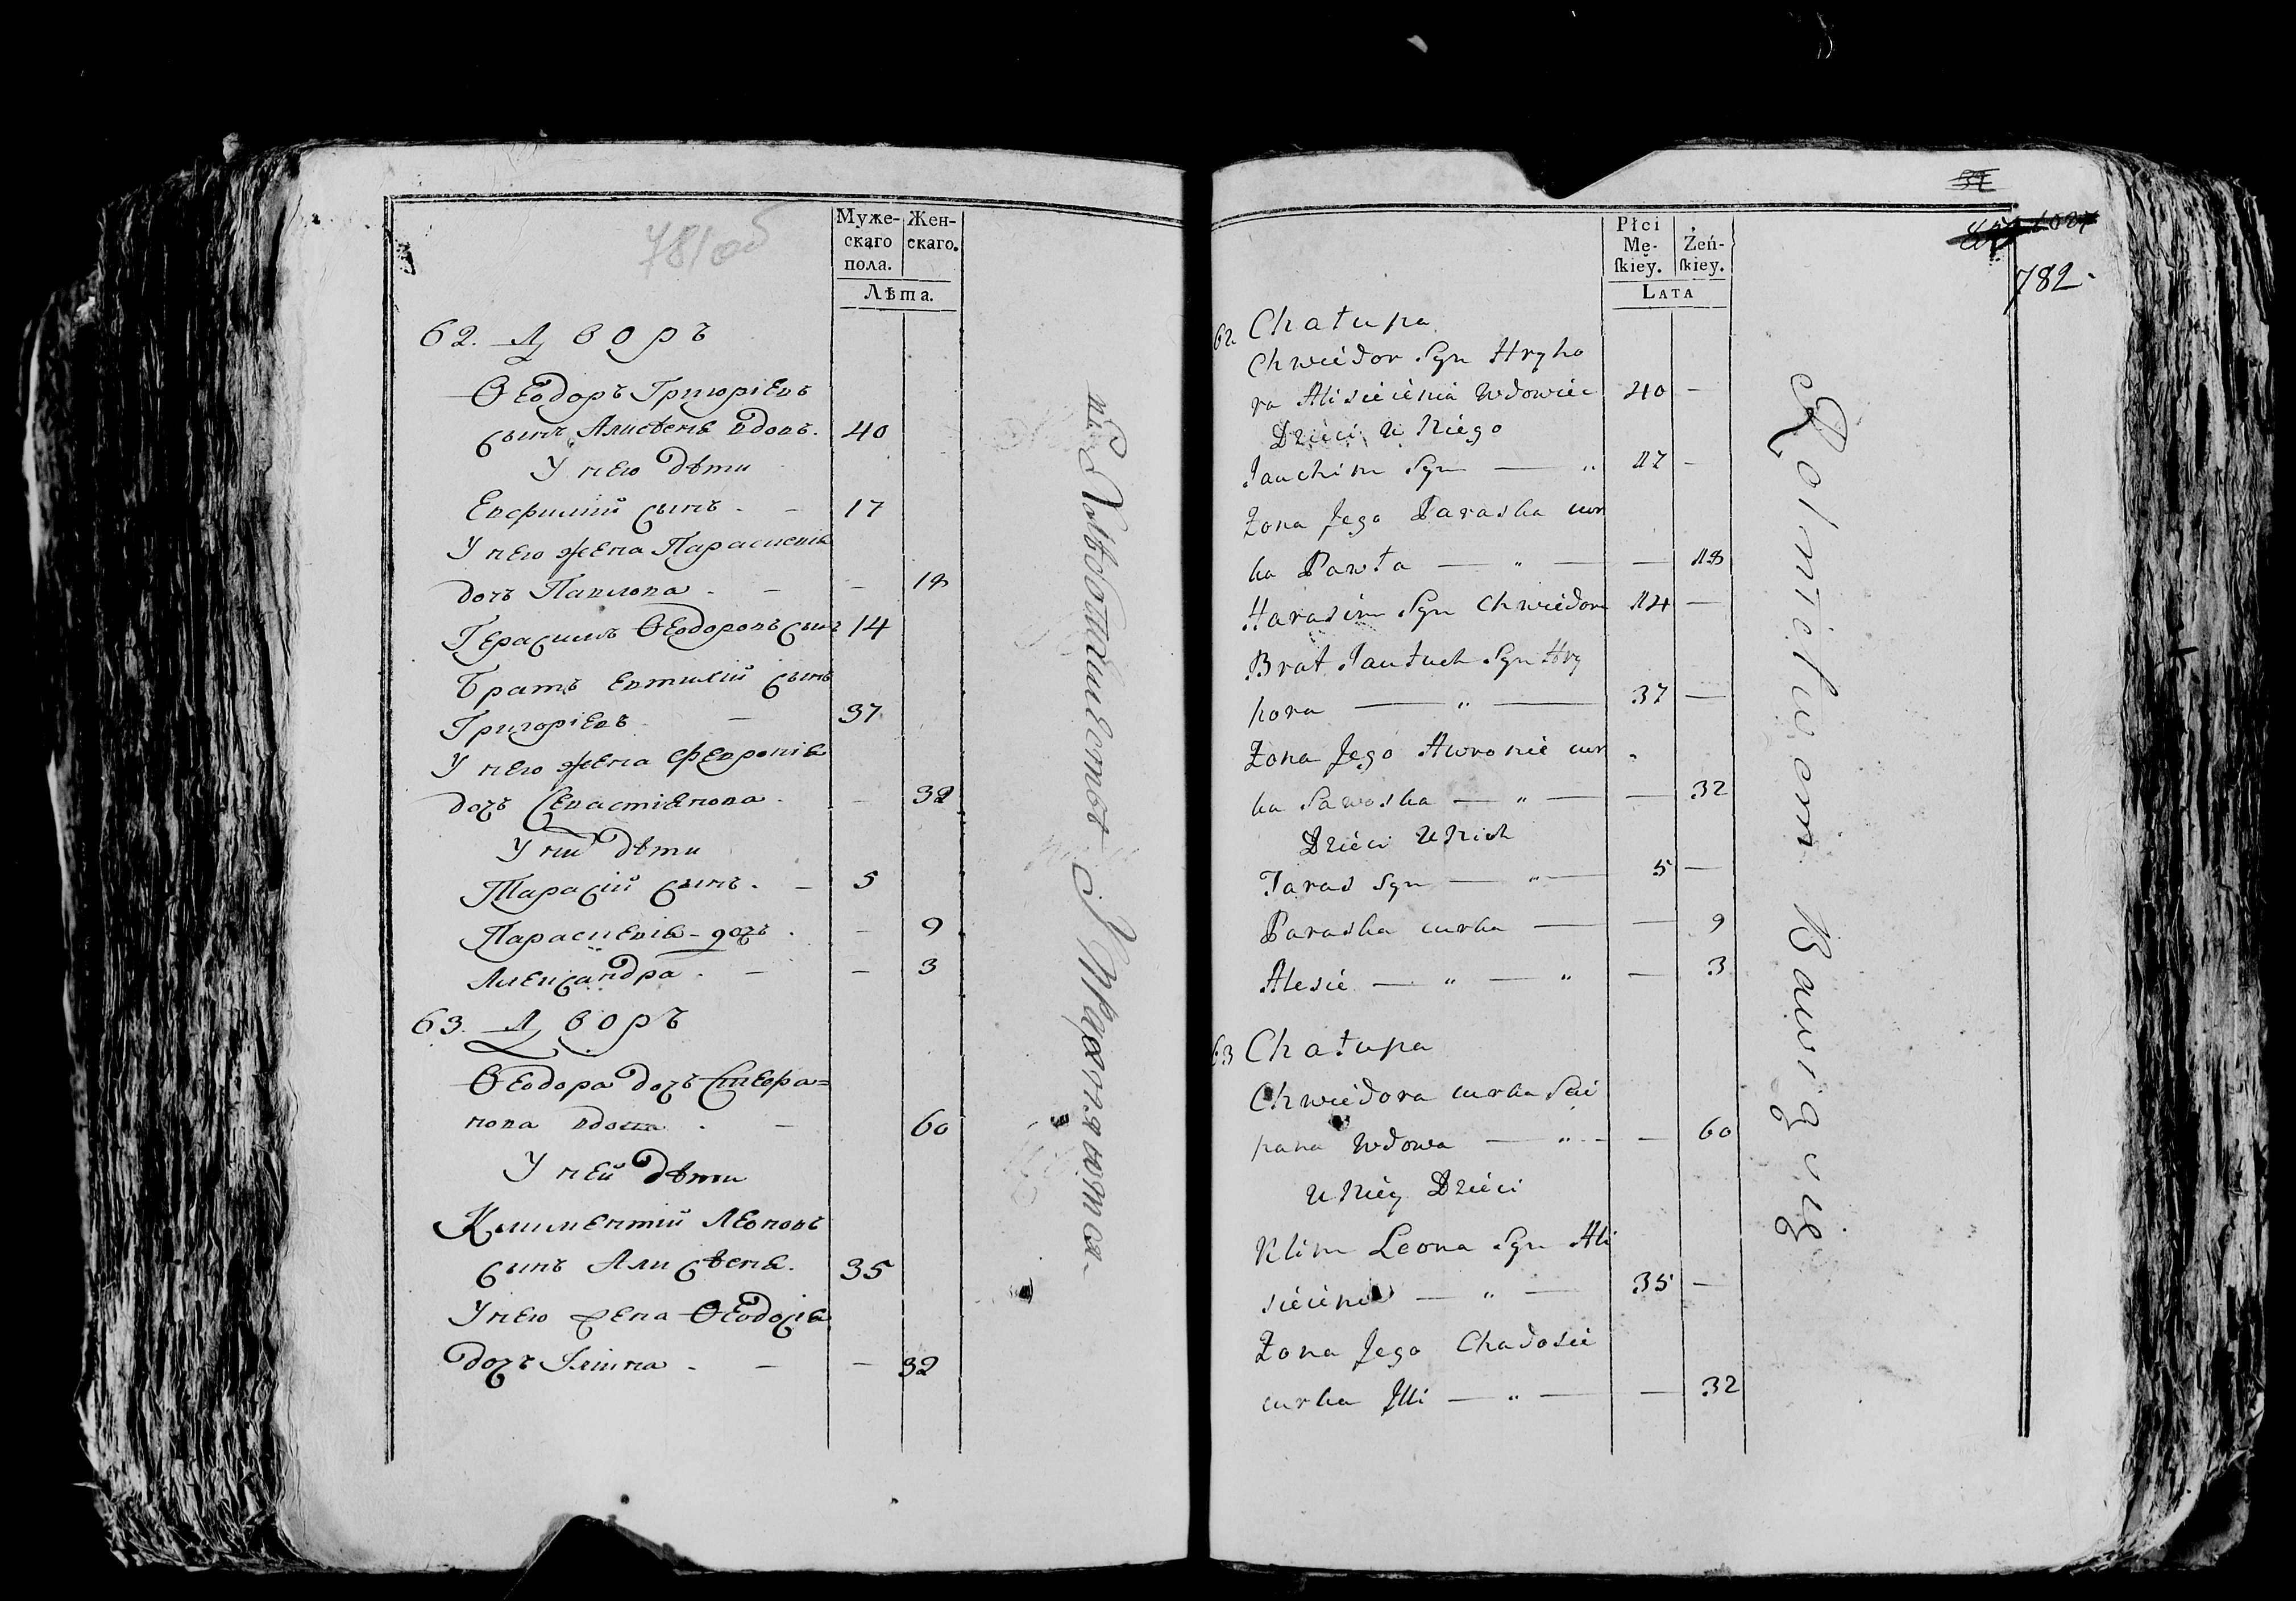 781 об
Муже-
скаго
пола.
Жен-
скаго.
Лѣта.
62. Дворъ
Ѳеодоръ Григоріевъ
сынъ Алисѣеня вдовъ. 40
У него дѣти
Евфимій сынъ. - 17
У него жена Параскевія
дочь Павлова. - - 18
Герасимъ Ѳеодоровъ сынъ 14
Братъ Евтихій сынъ
Григоріевъ - 37
У него жена Февронія
дочь Севастіянова. - 32
У них дѣти
Тарасій сынъ. - 5
Параскевія - дочь. - 9
Александра. - - 3
63. Дворъ
Ѳеодора дочь Стефа=
нова вдова. - 60
У ней дѣти
Климентій Леоновъ
сынъ Алисѣеня. 35
У него жена Ѳеодосія
дочь Іліина. - - 32
Хлѣбопашествомъ Упражняются
32
782.
Płci
Mę-
ſkiey.
Żeń-
ſkiey.
Lata
62. Chałupa
Chwiédor Syn Hryho
ra Alisieienia Wdowiec 40 —
Dzieci u Niégo
Jauchim Syn — „ 17 —
Żona Jego Paraska cur
ka Pawła — „ — — 18
Harasim Syn Chwiédora 14 —
Brat Jautuch Syn Hry
hora — „ — 37 —
Żona Jego Awronié cur
ka Sawoska — „ — — 32
Dziéci U Nich
Taras Syn — „ — 5 —
Paraska curka — — 9
Alesié — „ — „ — 3
63 Chałupa
Chwiédora curka Sci
pana Wdowa — „ - — 60
U Niéy Dziéci
Klim Leona Syn Ali
siéienia — „ — 35 —
Żona Jego Chadosié
curka Illi — „ — — 32
Rolnictwem Bawią się